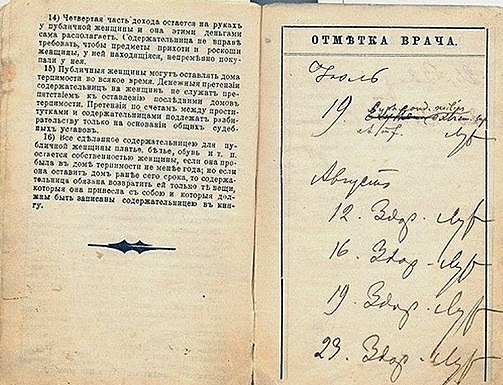 14) Четвертая часть дохода остается на руках
у публичной женщины и она этими деньгами
сама располагаетъ. Содержательница не вправѣ
требовать, чтобы предметы прихоти и роскоши
женщины, у ней находящіяся, непремѣнно поку-
пали у нея.
15) Публичныя женщины могутъ оставлять дома
терпимости во всякое время. Денежныя претензіи
содержательницъ на женщинъ не служатъ пре-
пятствіемъ къ оставленію послѣдними домовъ
терпимости. Претензіи по счетамъ между прости-
тутками и содержательницами подлежатъ разби-
рательству только на основаніи общихъ судеб-
ныхъ уставовъ.
16) Все сдѣланное содержательницею для пу-
бличной женщины платье, бѣлье, обувь и т. п.
остается собственностью женщины, если она про-
была въ домѣ терпимости не менѣе года; но если
она оставитъ домъ ранѣе сего срока, то содержа-
тельница обязана возвратить ей только тѣ вещи,
которыя она принесла съ собою и которыя дол-
жны быть записаны содержательницею въ кни-
гу.
ОТМѢТКА ВРАЧА.
Іюль
19.
Августъ
12. Здор.
16. Здор.
19. Здор.
23. Здор.